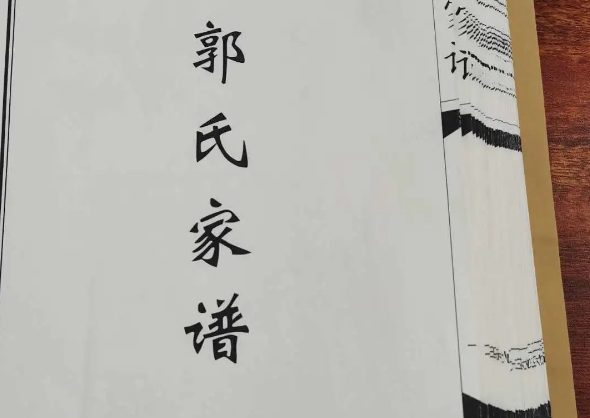 郭氏家谱